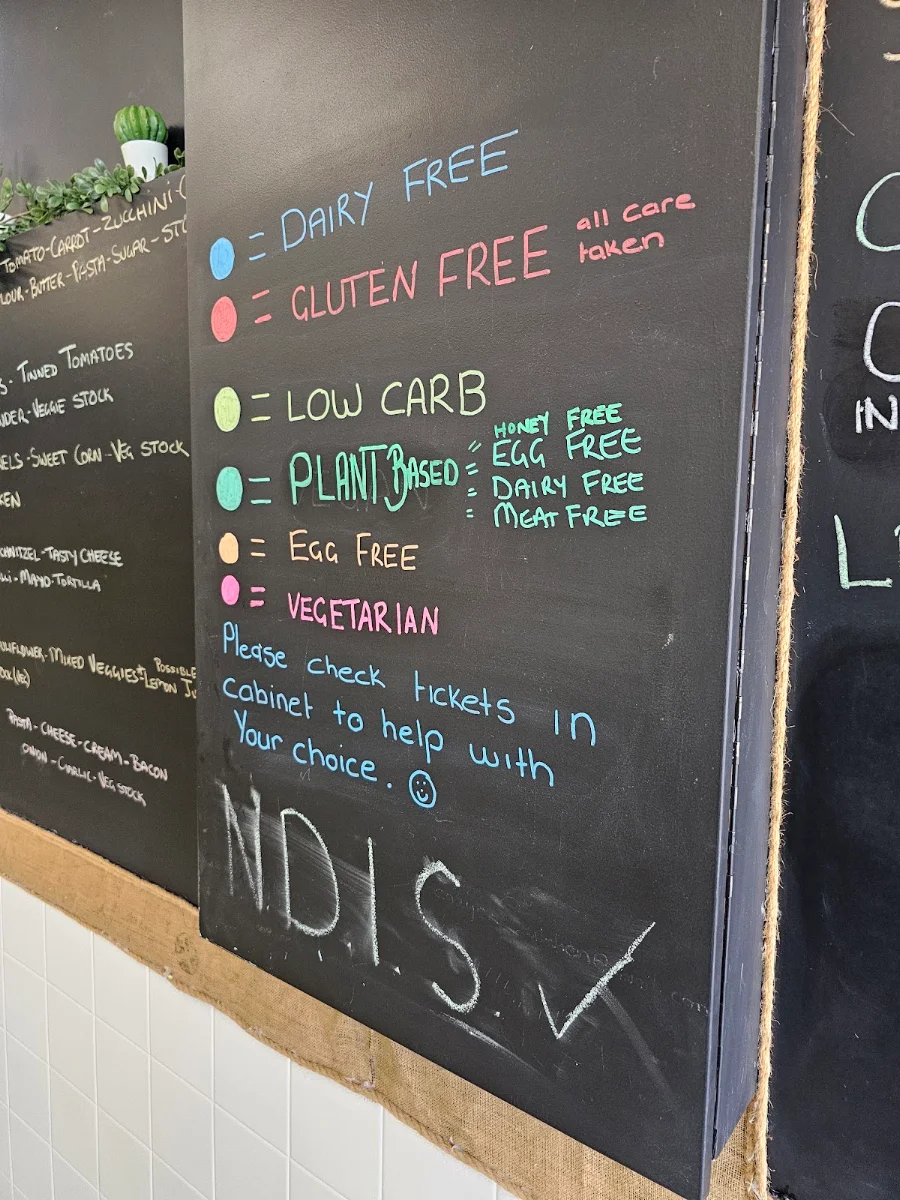 TOMATO-CARROT-ZUCCHINI-
BUTTER-PASTA-SUGAR-
TINNED TOMATOES
VEGGIE STOCK
SWEET CORN-VEG STOCK
TASTY CHEESE
MAYO-TORTILLA
MIXED VEGGIES POSSIBLE
LEMON
PASTA-CHEESE-CREAM-BACON
ONION-GARLIC-VEG STOCK
= DAIRY FREE
= GLUTEN FREE all care
taken
= LOW CARB
= PLANT BASED = HONEY FREE
= EGG FREE
= DAIRY FREE
= MEAT FREE
= EGG FREE
= VEGETARIAN
Please check tickets in
cabinet to help with
Your choice. ☺
N.D.I.S ✓
IN